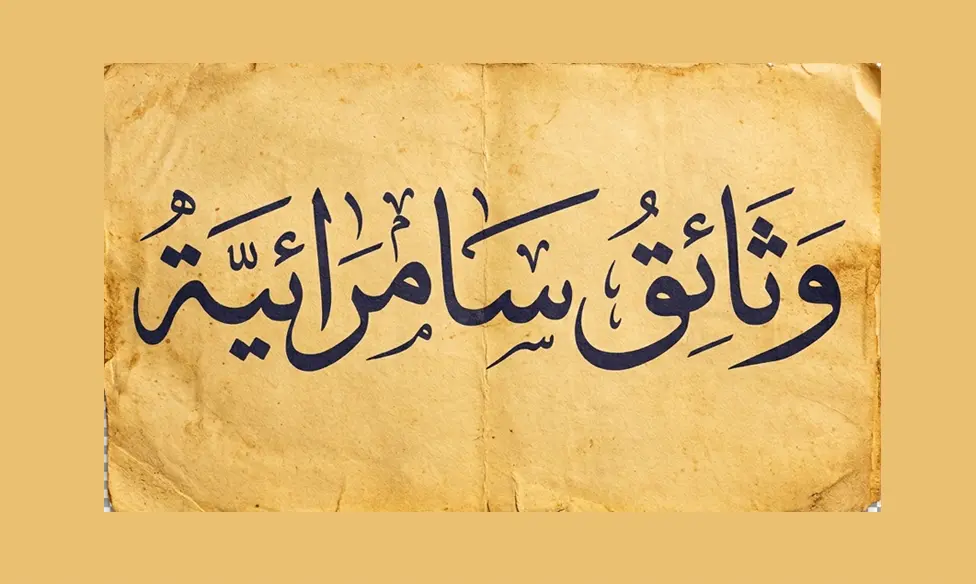 وَثَائِقُ سَامَرَائِيَّةُ